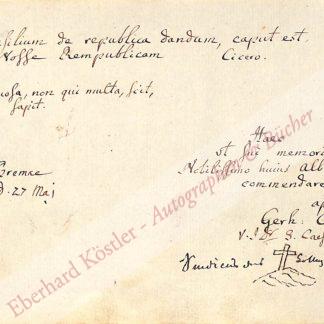 silium de republica dandum, caput est
Nosse Rempublicam Cicero.
uosa, non qui multa, scit,
sapit.
Haec
ut sui memori
Nobilissimo huius Alb
commendare
Bremae
d. 27 Maj
ap
Gerh.
V. J. D. S. Caes
Eberhard Köstler - Autographen & Bücher